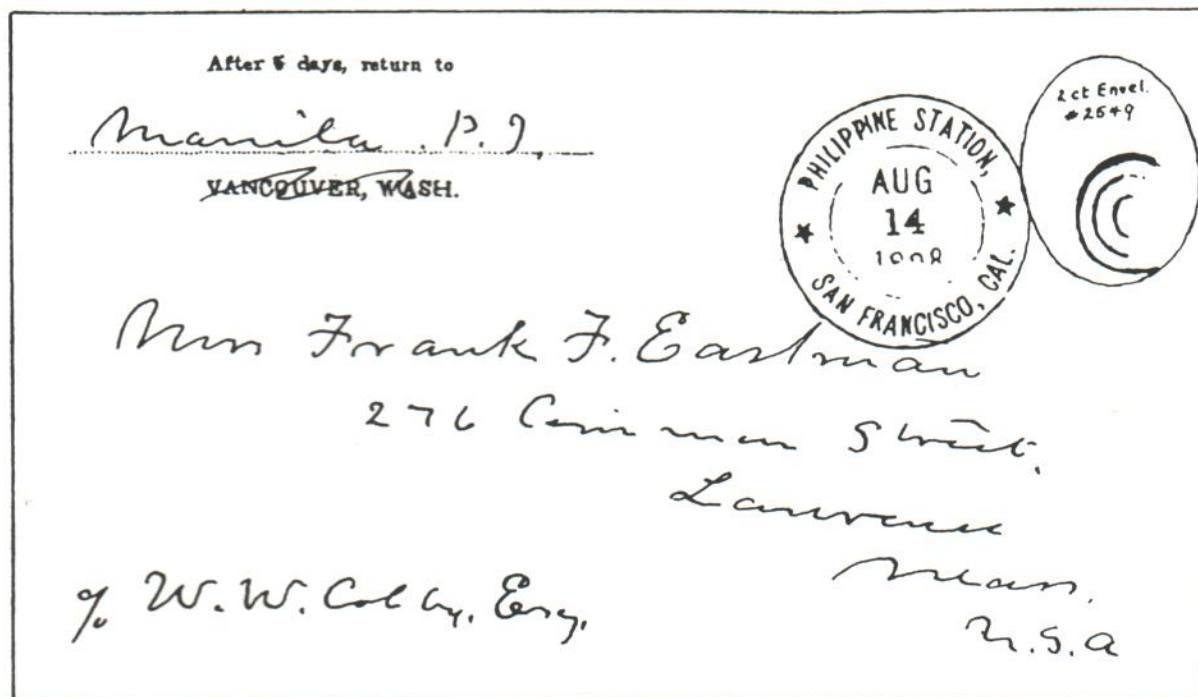 After 5 days, return to
Manila. P. I.
VANCOUVER, WASH.
PHILIPPINE STATION,
AUG
14
SAN FRANCISCO, CAL.
2 ct Envel.
#2549
Frank F. Eastman
276 Common Street.
Lawrence
Mass.
U.S.A
c/o W. W. Colby, Esq.